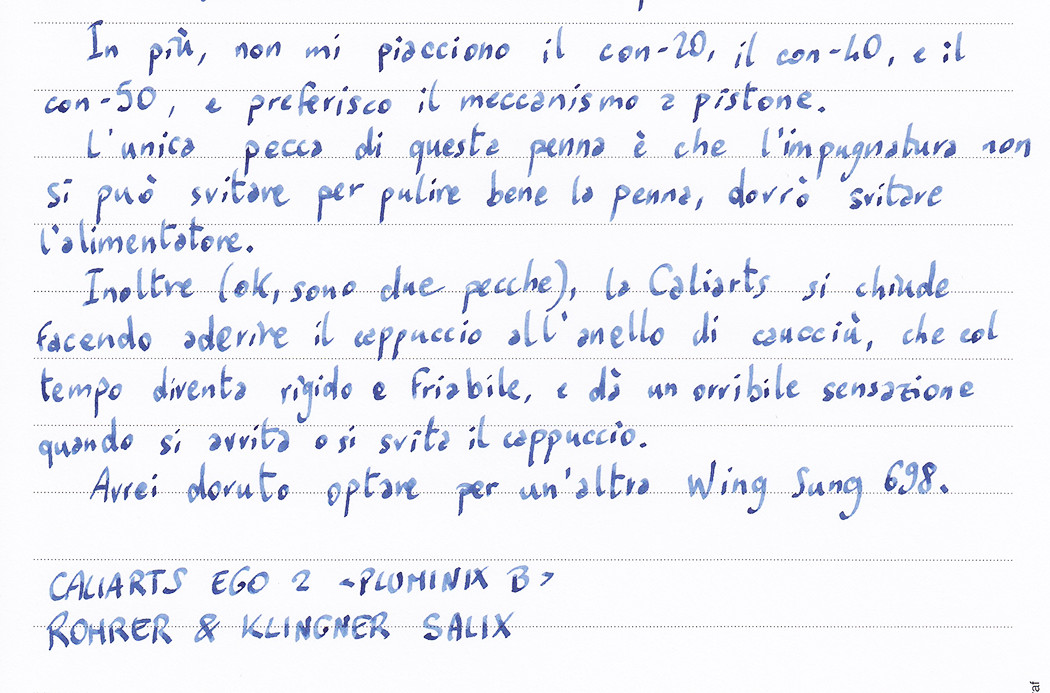 In più, non mi piacciono il con-20, il con-40, e il
con-50, e preferisco il meccanismo a pistone.
L'unica pecca di questa penna è che l'impugnatura non
si può svitare per pulire bene la penna, dovrò svitare
l'alimentatore.
Inoltre (ok, sono due pecche), la Caliarts si chiude
facendo aderire il cappuccio all'anello di caucciù, che col
tempo diventa rigido e friabile, e dà un orribile sensazione
quando si avvita o si svita il cappuccio.
Avrei dovuto optare per un'altra Wing Sung 698.
CALIARTS EGO 2 <PLUMINIX B>
ROHRER & KLINGNER SALIX
af